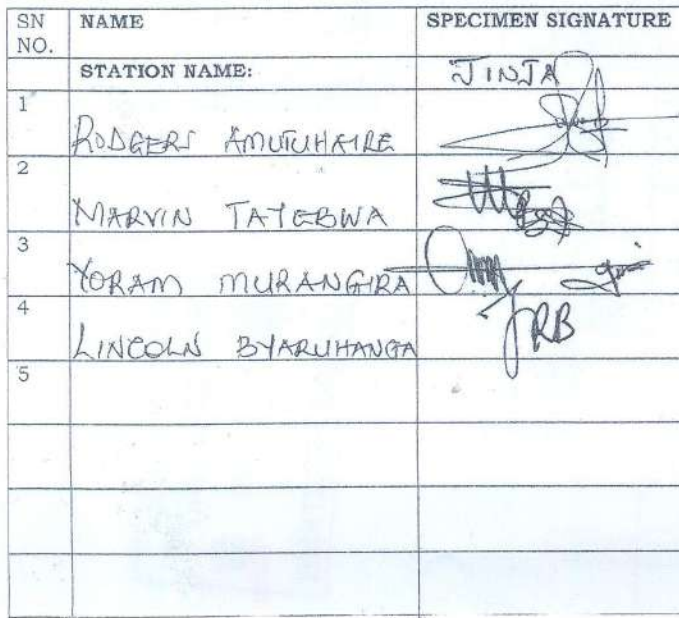 SN NO. NAME SPECIMEN SIGNATURE
STATION NAME: JINJA
1 RODGERS AMUTUHAIRE
2 MARVIN TAYEBWA
3 YORAM MURANGIRA
4 LINCOLN BYARUHANGA JRB
5